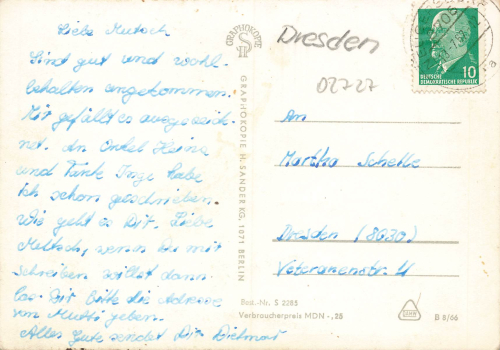 Liebe Mutsch
Sind gut und wohl-
behalten angekommen.
Mir gefällt es ausgezeich-
net. An Onkel Heinz
und Tante Inge habe
ich schon geschrieben.
Wie geht es Dir. Liebe
Mutsch, wenn Du mir
schreiben willst dann
las Dir bitte die Adresse
von Mutti geben.
Alles Gute sendet Dir Dietmar
GRAPHOKOPIE
GRAPHOKOPIE H. SANDER KG, 1071 BERLIN
Best.-Nr. S 2285
Verbraucherpreis MDN -,25
Dresden
02727
10
DEUTSCHE
DEMOKRATISCHE REPUBLIK
706
a
An
Martha Schelle
Dresden (8030)
Veteranenstr. 4
B 8/66